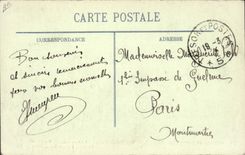 CARTE POSTALE
CORRESPONDANCE
ADRESSE
Bon souvenir
et sincère remerciement
pour vos bonnes nouvelles
Mademoiselle Marguerite
1 Impasse de Guelma
Paris
Montmartre